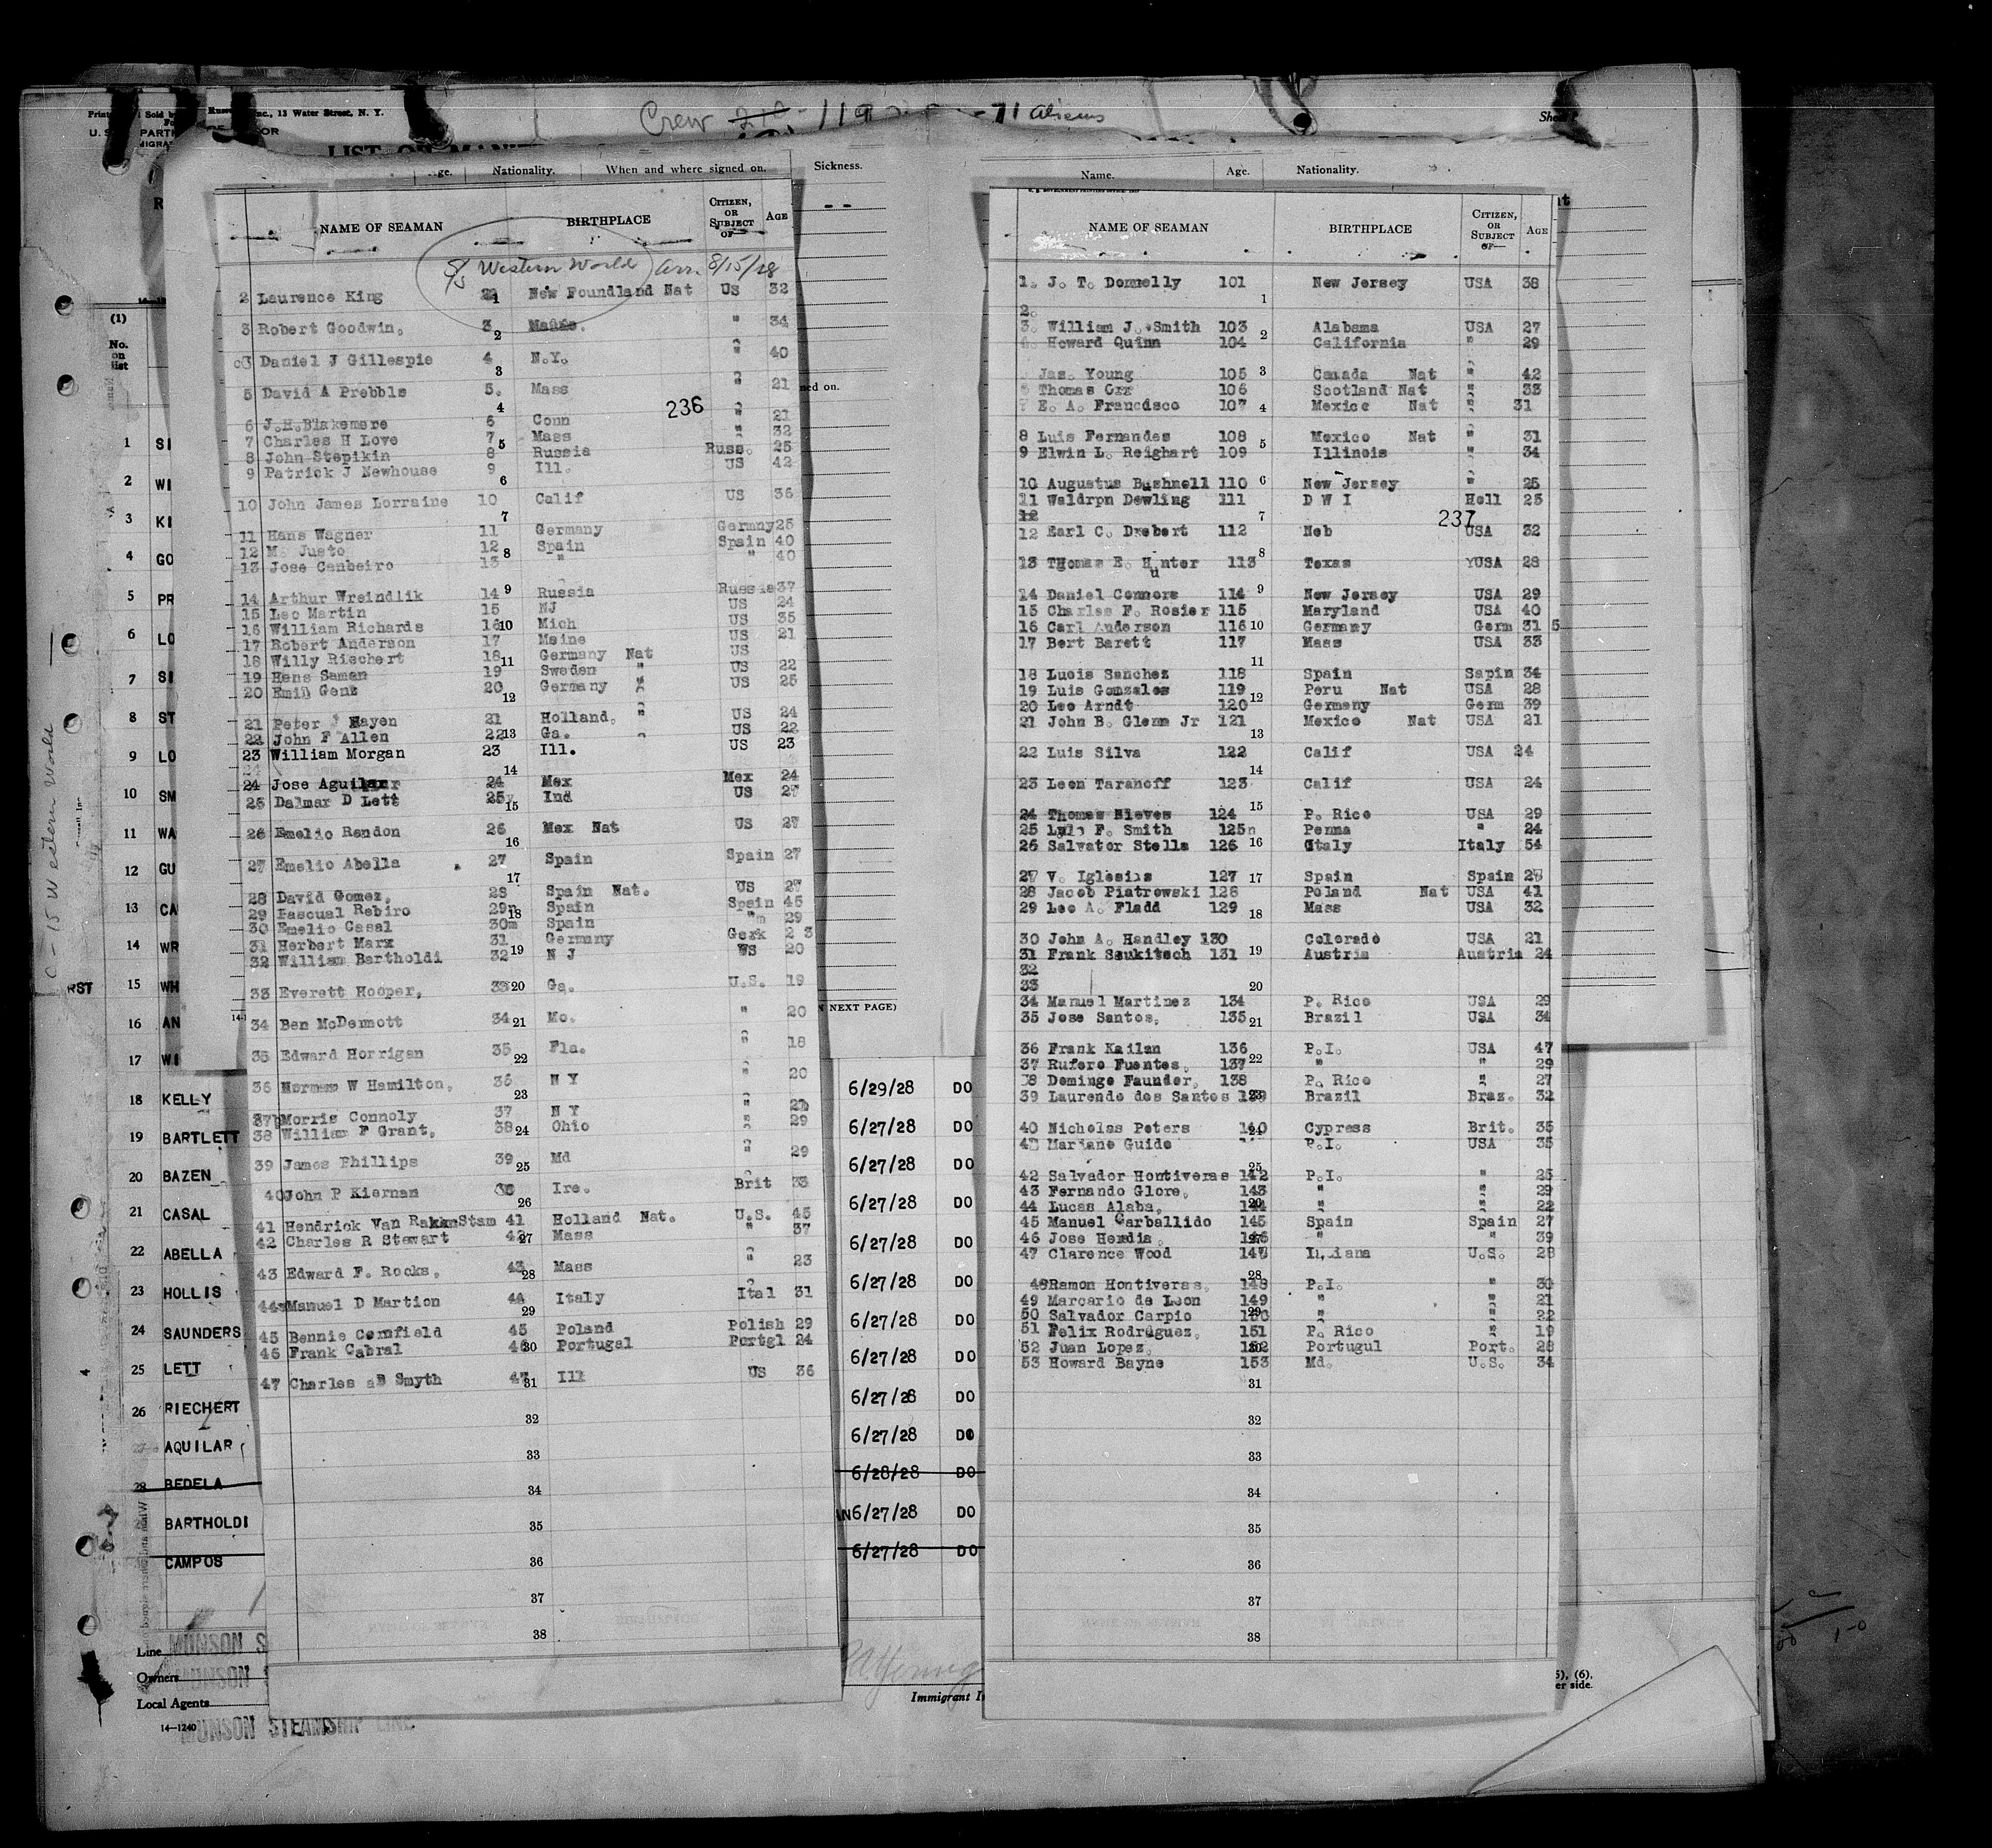 Crew 119 71 Aliens
Russ Inc., 13 Water Street, N. Y.
Nationality. When and where signed on. Sickness.
Name. Age. Nationality.
NAME OF SEAMAN BIRTHPLACE CITIZEN, OR SUBJECT OF— AGE
S/S Western World arr. 8/15/28
2 Laurence King New Foundland Nat US 32
3 Robert Goodwin, 3 Maine. " 34
3 Daniel J Gillespie 4 N.Y. " 40
5 David A Prebble 5. Mass " 21
236
6 J.H.Blakemore 6 Conn " 21
7 Charles H Love 7 Mass " 32
8 John Stepikin 8 Russia Russ. 25
9 Patrick J Newhouse 9 Ill. US 42
10 John James Lorraine 10 Calif US 36
11 Hans Wagner 11 Germany Germny 25
12 M Justo 12 Spain Spain 40
13 Jose Canbeiro 13 " " 40
14 Arthur Wreindlik 14 Russia Russia 37
15 Leo Martin 15 NJ US 24
16 William Richards 16 Mich US 35
17 Robert Anderson 17 Maine US 21
18 Willy Riechert 18 Germany Nat US
19 Hans Saman 19 Sweden " US 22
20 Emil Genz 20 Germany " US 25
21 Peter Hayen 21 Holland, " US 24
22 John F Allen 22 Ga. US 22
23 William Morgan 23 Ill. US 23
24 Jose Aguilar 24 Mex Mex 24
25 Dalmar D Lett 25 Ind US 27
26 Emelio Rendon 26 Mex Nat US 27
27 Emelio Abella 27 Spain Spain 27
28 David Gomez, 28 Spain Nat. US 27
29 Pascual Rebiro 29 Spain Spain 45
30 Emelio Casal 30m Spain "m 29
31 Herbert Marx 31 Germany Gerk 2 3
32 William Bartholdi 32 N J US 20
33 Everett Hooper, 33 Ga. U.S. 19
34 Ben McDermott 34 Mo. " 20
35 Edward Horrigan 35 Fla. " 18
36 Herman W Hamilton, 36 N Y " 20
37 Morris Connoly 37 N Y " 21
38 William F Grant, 38 Ohio " 29
39 James Phillips 39 Md " 29
40 John P Kiernan Ire. Brit 33
41 Hendrick Van Stam 41 Holland Nat. U.S. 45
42 Charles R Stewart 42 Mass " 37
43 Edward F. Rocks, 43 Mass " 23
44 Manuel D Martion 44 Italy Ital 31
45 Bennie Cornfield 45 Poland Polish 29
46 Frank Cabral 46 Portugal Portgl 24
47 Charles B Smyth 47 Ill US 36
31
32
33
34
35
36
37
38
NAME OF SEAMAN BIRTHPLACE CITIZEN, OR SUBJECT OF— AGE
1. J. T. Donnelly 101 New Jersey USA 38
2.
3. William J. Smith 103 Alabama USA 27
Howard Quinn 104 California " 29
Jas. Young 105 Canada Nat " 42
Thomas Orr 106 Scotland Nat " 33
7 E. A. Francisco 107 Mexico Nat " 31
8 Luis Fernandes 108 Mexico Nat " 31
9 Elwin L. Reighart 109 Illinois " 34
10 Augustus Bushnell 110 New Jersey " 25
11 Waldrpn Dowling 111 D W I Holl 25
12
237
12 Earl C. Drebert 112 Neb USA 32
13 Thomas E. Hunter 113 Texas YUSA 28
14 Daniel Connors 114 New Jersey USA 29
15 Charles F. Rosier 115 Maryland USA 40
16 Carl Anderson 116 Germany Germ 31 5
17 Bert Barett 117 Mass USA 33
18 Lucis Sanchez 118 Spain Sapin 34
19 Luis Gonzales 119 Peru Nat USA 28
20 Leo Arndt 120 Germany Germ 39
21 John B. Glenn Jr 121 Mexico Nat USA 21
22 Luis Silva 122 Calif USA 24
23 Leon Taranoff 123 Calif USA 24
24 Thomas Nieves 124 P. Rico USA 29
25 Lyle F. Smith 125n Penna " 24
26 Salvator Stella 126 Italy Italy 54
27 V. Iglesias 127 Spain Spain 27
28 Jacob Piatrowski 128 Poland Nat USA 41
29 Leo A. Fladd 129 Mass USA 32
30 John A. Handley 130 Colorado USA 21
31 Frank Soukitsch 131 Austria Austria 24
32
33
34 Manuel Martinez 134 P. Rico USA 29
35 Jose Santos, 135 Brazil USA 34
36 Frank Kailan 136 P.I. USA 47
37 Rufero Fuentes, 137 " " 29
38 Domingo Faunder, 138 P. Rico " 27
39 Laurendo dos Santos 139 Brazil Braz. 32
40 Nicholas Peters 140 Cypress Brit. 35
Mariano Guido P.I. USA 35
42 Salvador Hontiveras 142 P.I. " 25
43 Fernando Glore, 143 " " 29
44 Lucas Alaba, 144 " " 22
45 Manuel Carballido 145 Spain Spain 27
46 Jose Herdia, 146 " " 39
47 Clarence Wood 147 Indiana U.S. 28
48 Ramon Hontiveras, 148 P.I. " 30
49 Marcario de Leon 149 " " 21
50 Salvador Carpio 150 " " 22
51 Felix Rodruguez, 151 P. Rico " 19
52 Juan Lopez, 152 Portugul Port. 28
53 Howard Bayne 153 Md. U.S. 34
31
32
33
34
35
36
37
38
(1)
No. on list
1 SI
2 WI
3 KI
4 GO
5 PR
6 LO
7 SI
8 ST
9 LO
10 SM
11 WA
12 GU
13 CA
14 WR
15 WH
16 AN
17 WI
18 KELLY 6/29/28 DO
19 BARTLETT 6/27/28 DO
20 BAZEN 6/27/28 DO
21 CASAL 6/27/28 DO
22 ABELLA 6/27/28 DO
23 HOLLIS 6/27/28 DO
24 SAUNDERS 6/27/28 DO
25 LETT 6/27/28 DO
26 RIECHERT 6/27/28 DO
AQUILAR 6/27/28 DO
28 BEDELA 6/28/28 DO
BARTHOLDI 6/27/28 DO
CAMPOS 6/27/28 DO
NEXT PAGE)
Line MUNSON S
Owners MUNSON
Local Agents
14—1240 MUNSON STEAMSHIP LINE
Immigrant I
5), (6),
er side.